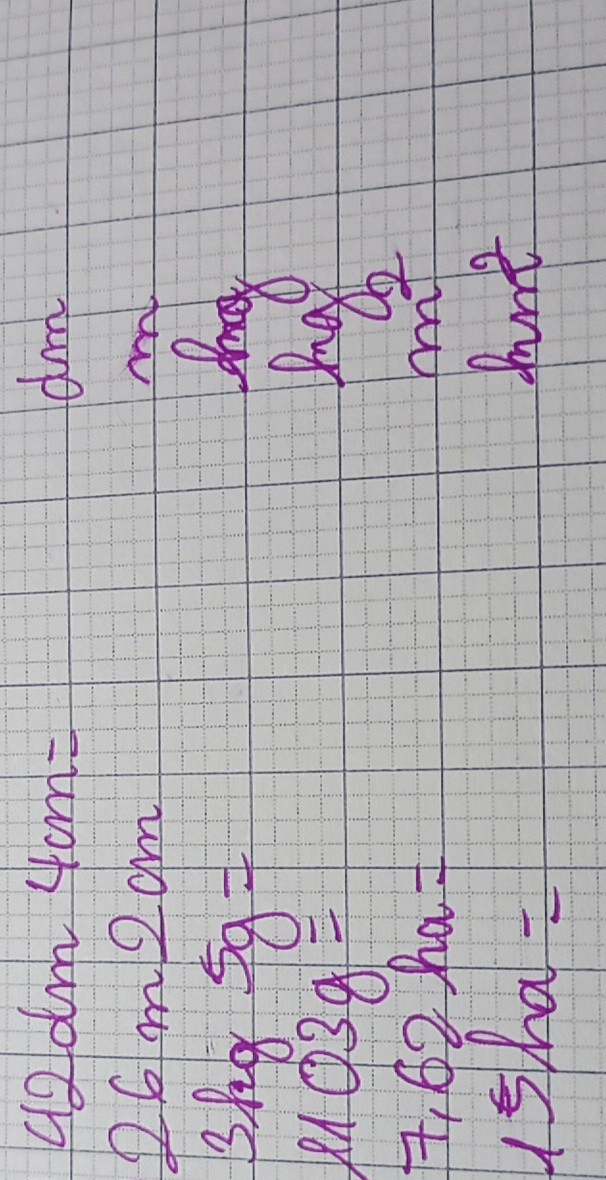 42dm 4cm= dm
26 m 2 cm m
3kg 5g = kg
1103g = kg
7,62 ha = m²
15 ha = km²